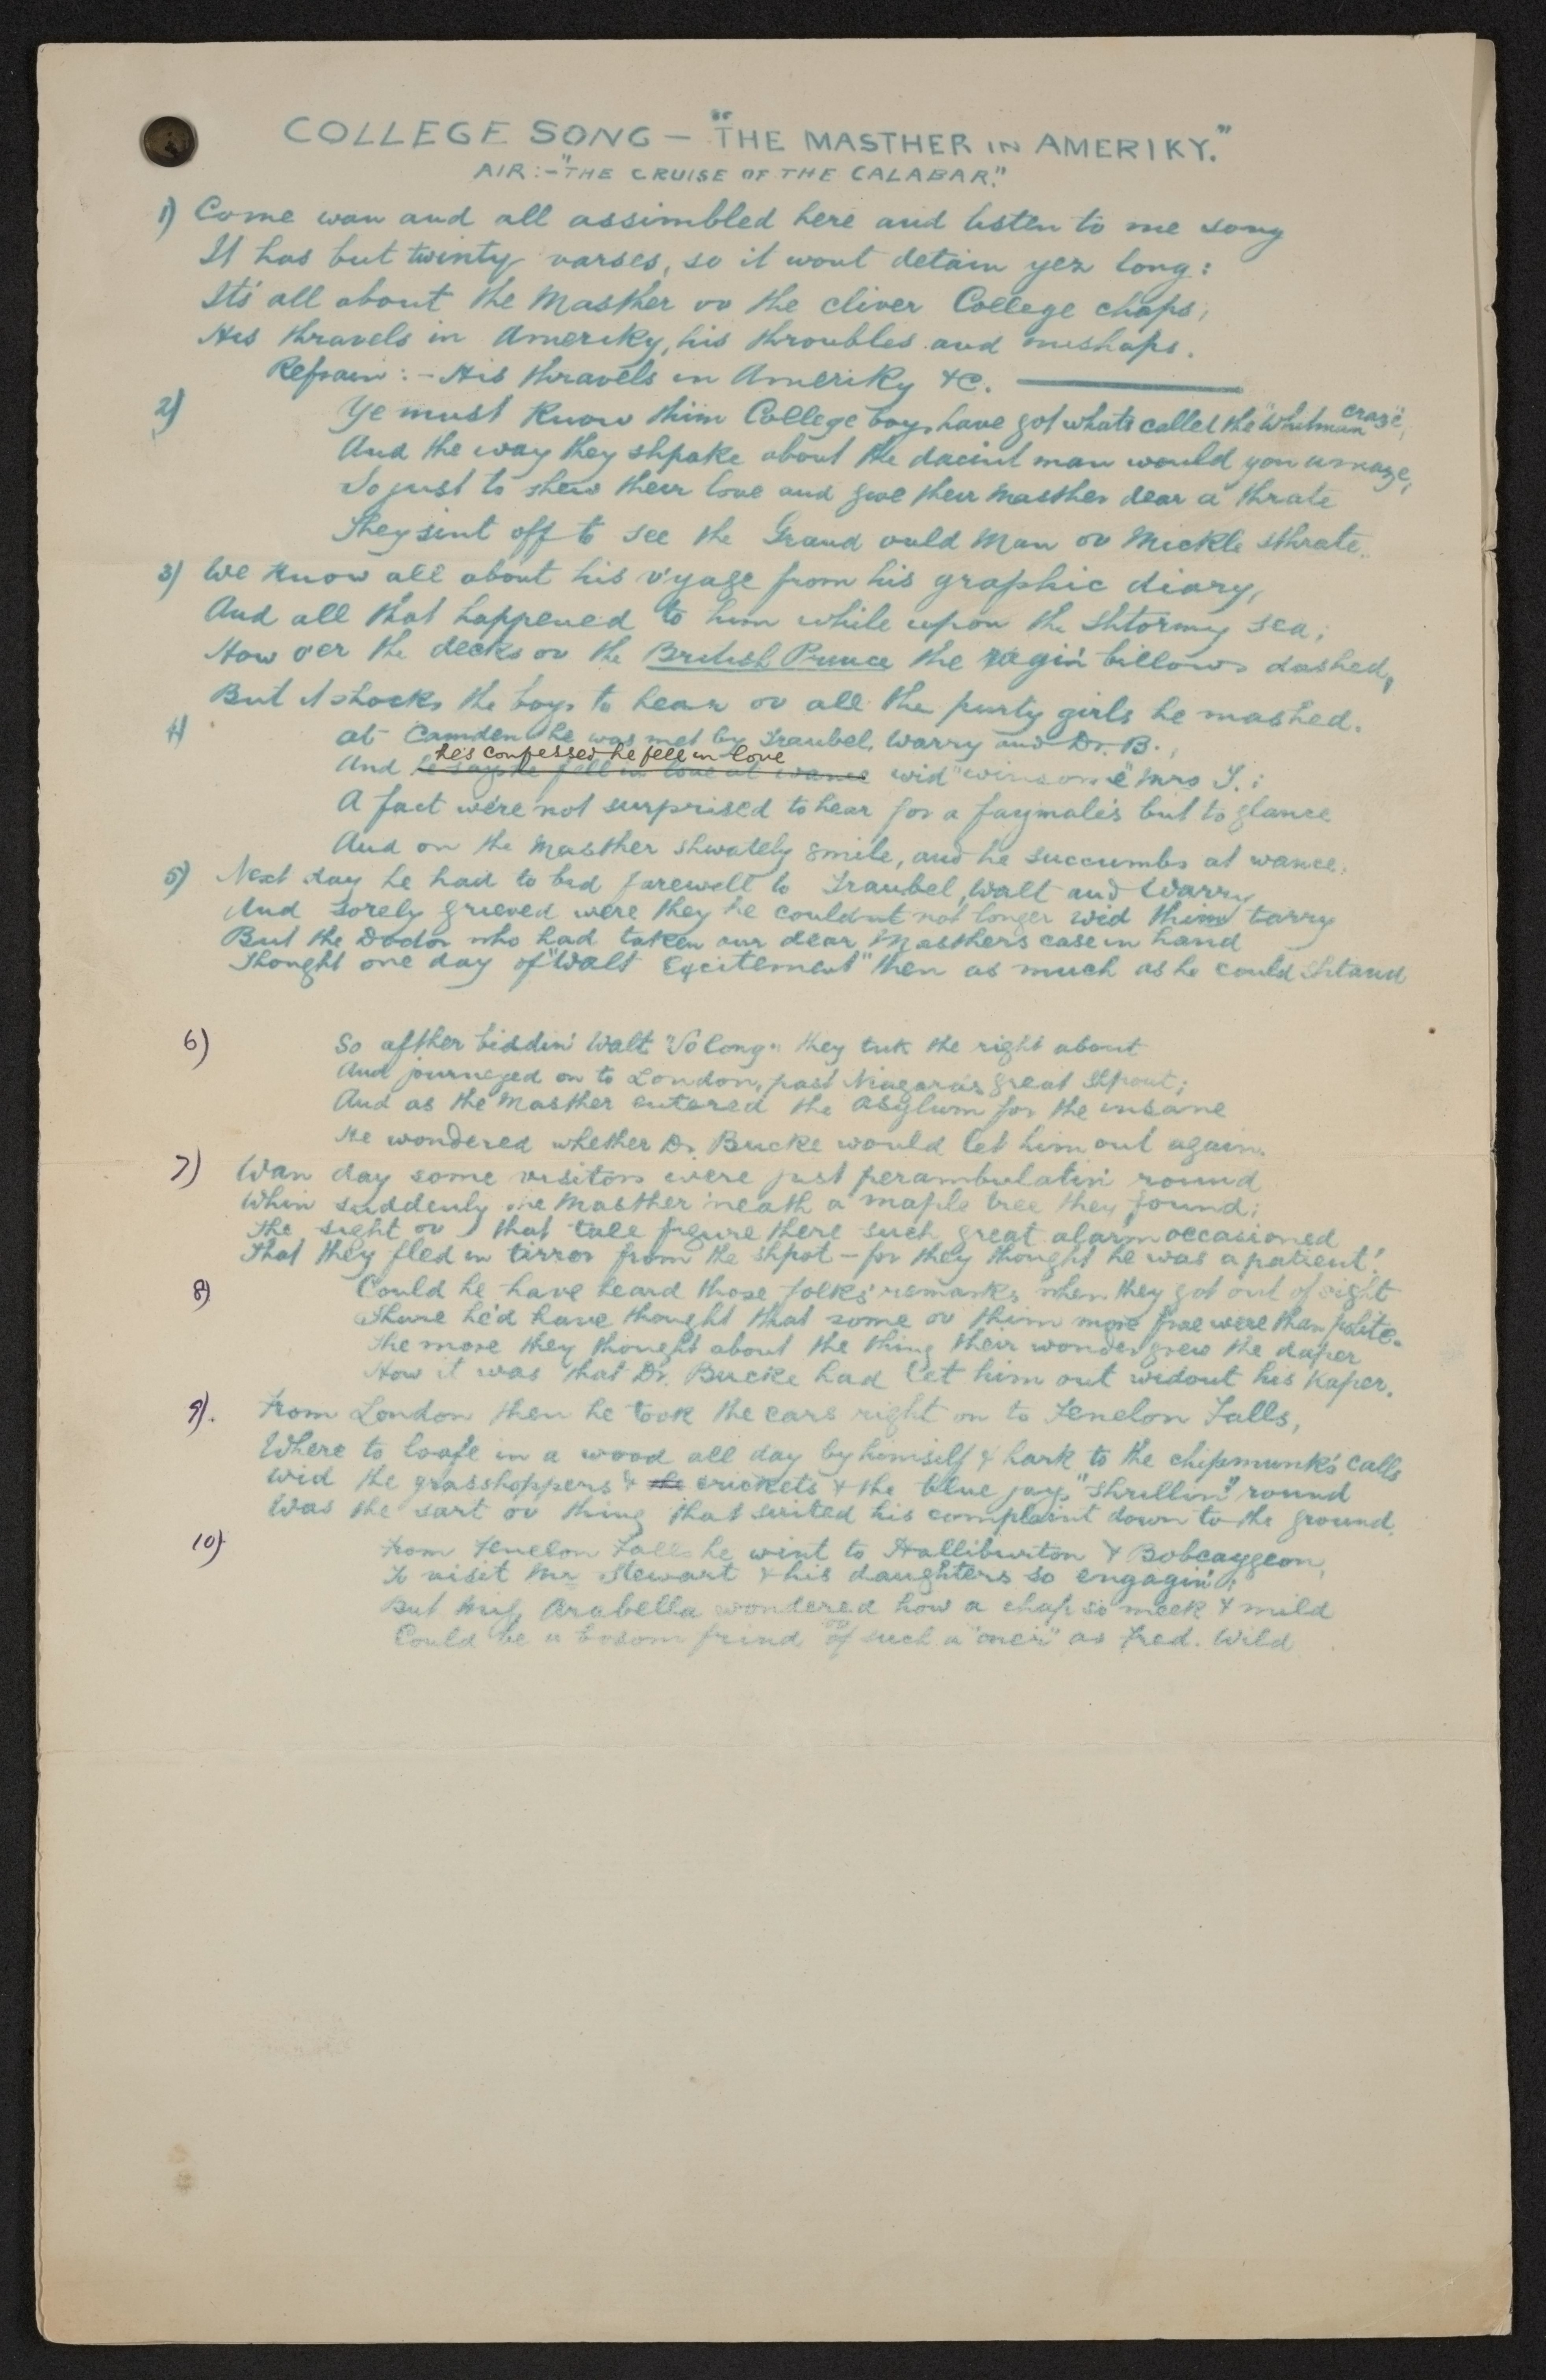 COLLEGE SONG — "THE MASTHER IN AMERIKY."
AIR:- "THE CRUISE OF THE CALABAR."
1) Come wan and all assimbled here and listen to me song
It has but twinty varses, so it wont detain yez long:
Its' all about the Masther ov the cliver College chaps,
His thravels in Ameriky, his throubles and mishaps.
Refrain:- His thravels in Ameriky &c.
2) Ye must know thim College boys have got whats called the "Whitman craze",
And the way they shpake about the dacint man would you amaze,
So just to shew their love and give their Masther dear a thrate
They sint off to see the Grand ould Man ov Mickle sthrate.
3) We know all about his v'yage from his graphic diary,
And all that happened to him while upon the shtormy sea;
How o'er the decks ov the British Prince the ragin' billows dashed,
But it shocks the boys to hear ov all the purty girls he mashed.
4) At Camden he was met by Traubel, Warry and Dr. B.,
he's confessed he fell in love
And he says he fell in love at wance wid "winsome" Mrs T.:
A fact we're not surprised to hear for a faymale's but to glance
And on the Masther shwately smile, and he succumbs at wance.
5) Next day he had to bid farewell to Traubel, Walt and Warry
And sorely grieved were they he couldnt not longer wid thim tarry
But the Doctor who had taken our dear Masther's case in hand
Thought one day of "Walt Excitement" then as much as he could shtand
6) So afther biddin' Walt "So long" they tuk the right about
And journeyed on to London, past Niagara's great Shpout;
And as the Masther entered the asylum for the insane
He wondered whether Dr. Bucke would let him out again.
7) Wan day some visitors were just perambulatin' round
Whin suddenly the Masther 'neath a maple tree they found;
The sight ov that tall figure there such great alarm occasioned
That they fled in tirror from the shpot — for they thought he was a patient!
8) Could he have heard those folks' remarks when they got out of sight
Shure he'd have thought that some ov thim more free were than polite.
The more they thought about the thing their wonder grew the daper
How it was that Dr. Bucke had let him out widout his Kaper.
9). From London then he took the cars right on to Fenelon Falls,
Where to loafe in a wood all day by himself & hark to the chipmunk's calls
Wid the grasshoppers & the crickets & the blue jays "shrillin'" round
Was the sart ov thing that suited his complaint down to the ground.
10) From Fenelon Falls he wint to Halliburton & Bobcaygeon,
To visit Mr Stewart & his daughters so engagin';
But Miss Arabella wondered how a chap so meek & mild
ov
Could be a bosom frind of such a "oner" as Fred. Wild